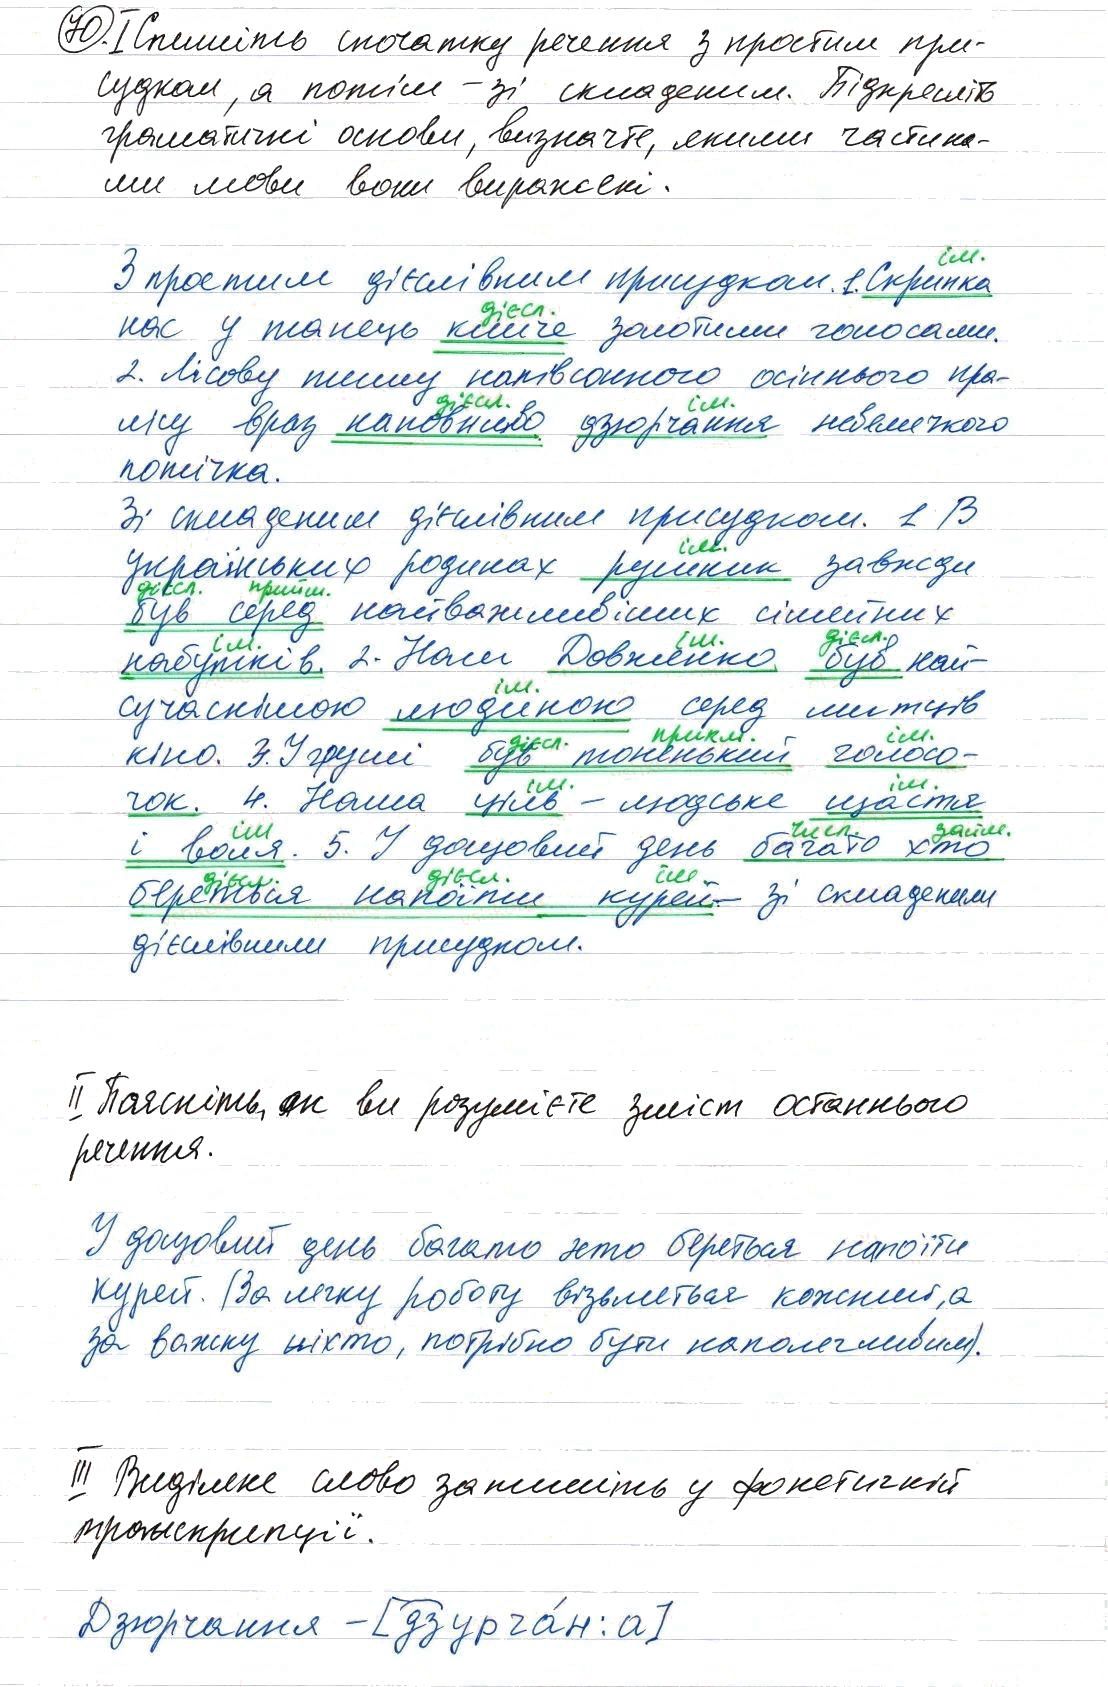 70. I Спишіть спочатку речення з простим при-
судком, а потім – зі складеним. Підкресліть
граматичні основи, визначте, якими частина-
ми мови вони виражені.
ім.
З простим дієслівним присудком. 1. Скрипка
дієсл.
нас у танець кличе золотими голосами.
2. Лісову тишу напівсонного осіннього пра-
дієсл. ім.
лісу враз наповнило дзюрчання невеличкого
потічка.
Зі складеним дієслівним присудком. 1 В
ім.
українських родинах рушник завжди
дієсл. прийм.
був серед найважливіших сімейних
ім. ім. дієсл.
набутків. 2. Наш Довженко був най-
ім.
сучаснішою людиною серед митців
дієсл. прикм. ім.
кіно. 3. У груші був тоненький голосо-
ім. ім.
чок. 4. Наша ціль – людське щастя
ім числ. займ.
і воля. 5. У дощовий день багато хто
дієсл. дієсл. ім.
береться напоїти курей – зі складеним
дієслівним присудком.
II Поясніть, як ви розумієте зміст останнього
речення.
У дощовий день багато хто береться напоїти
курей. (За легку роботу візьметься кожний, а
за важку ніхто, потрібно бути наполегливим).
III Виділене слово запишіть у фонетичній
транскрипції.
Дзюрчання – [дзурча́н:а]